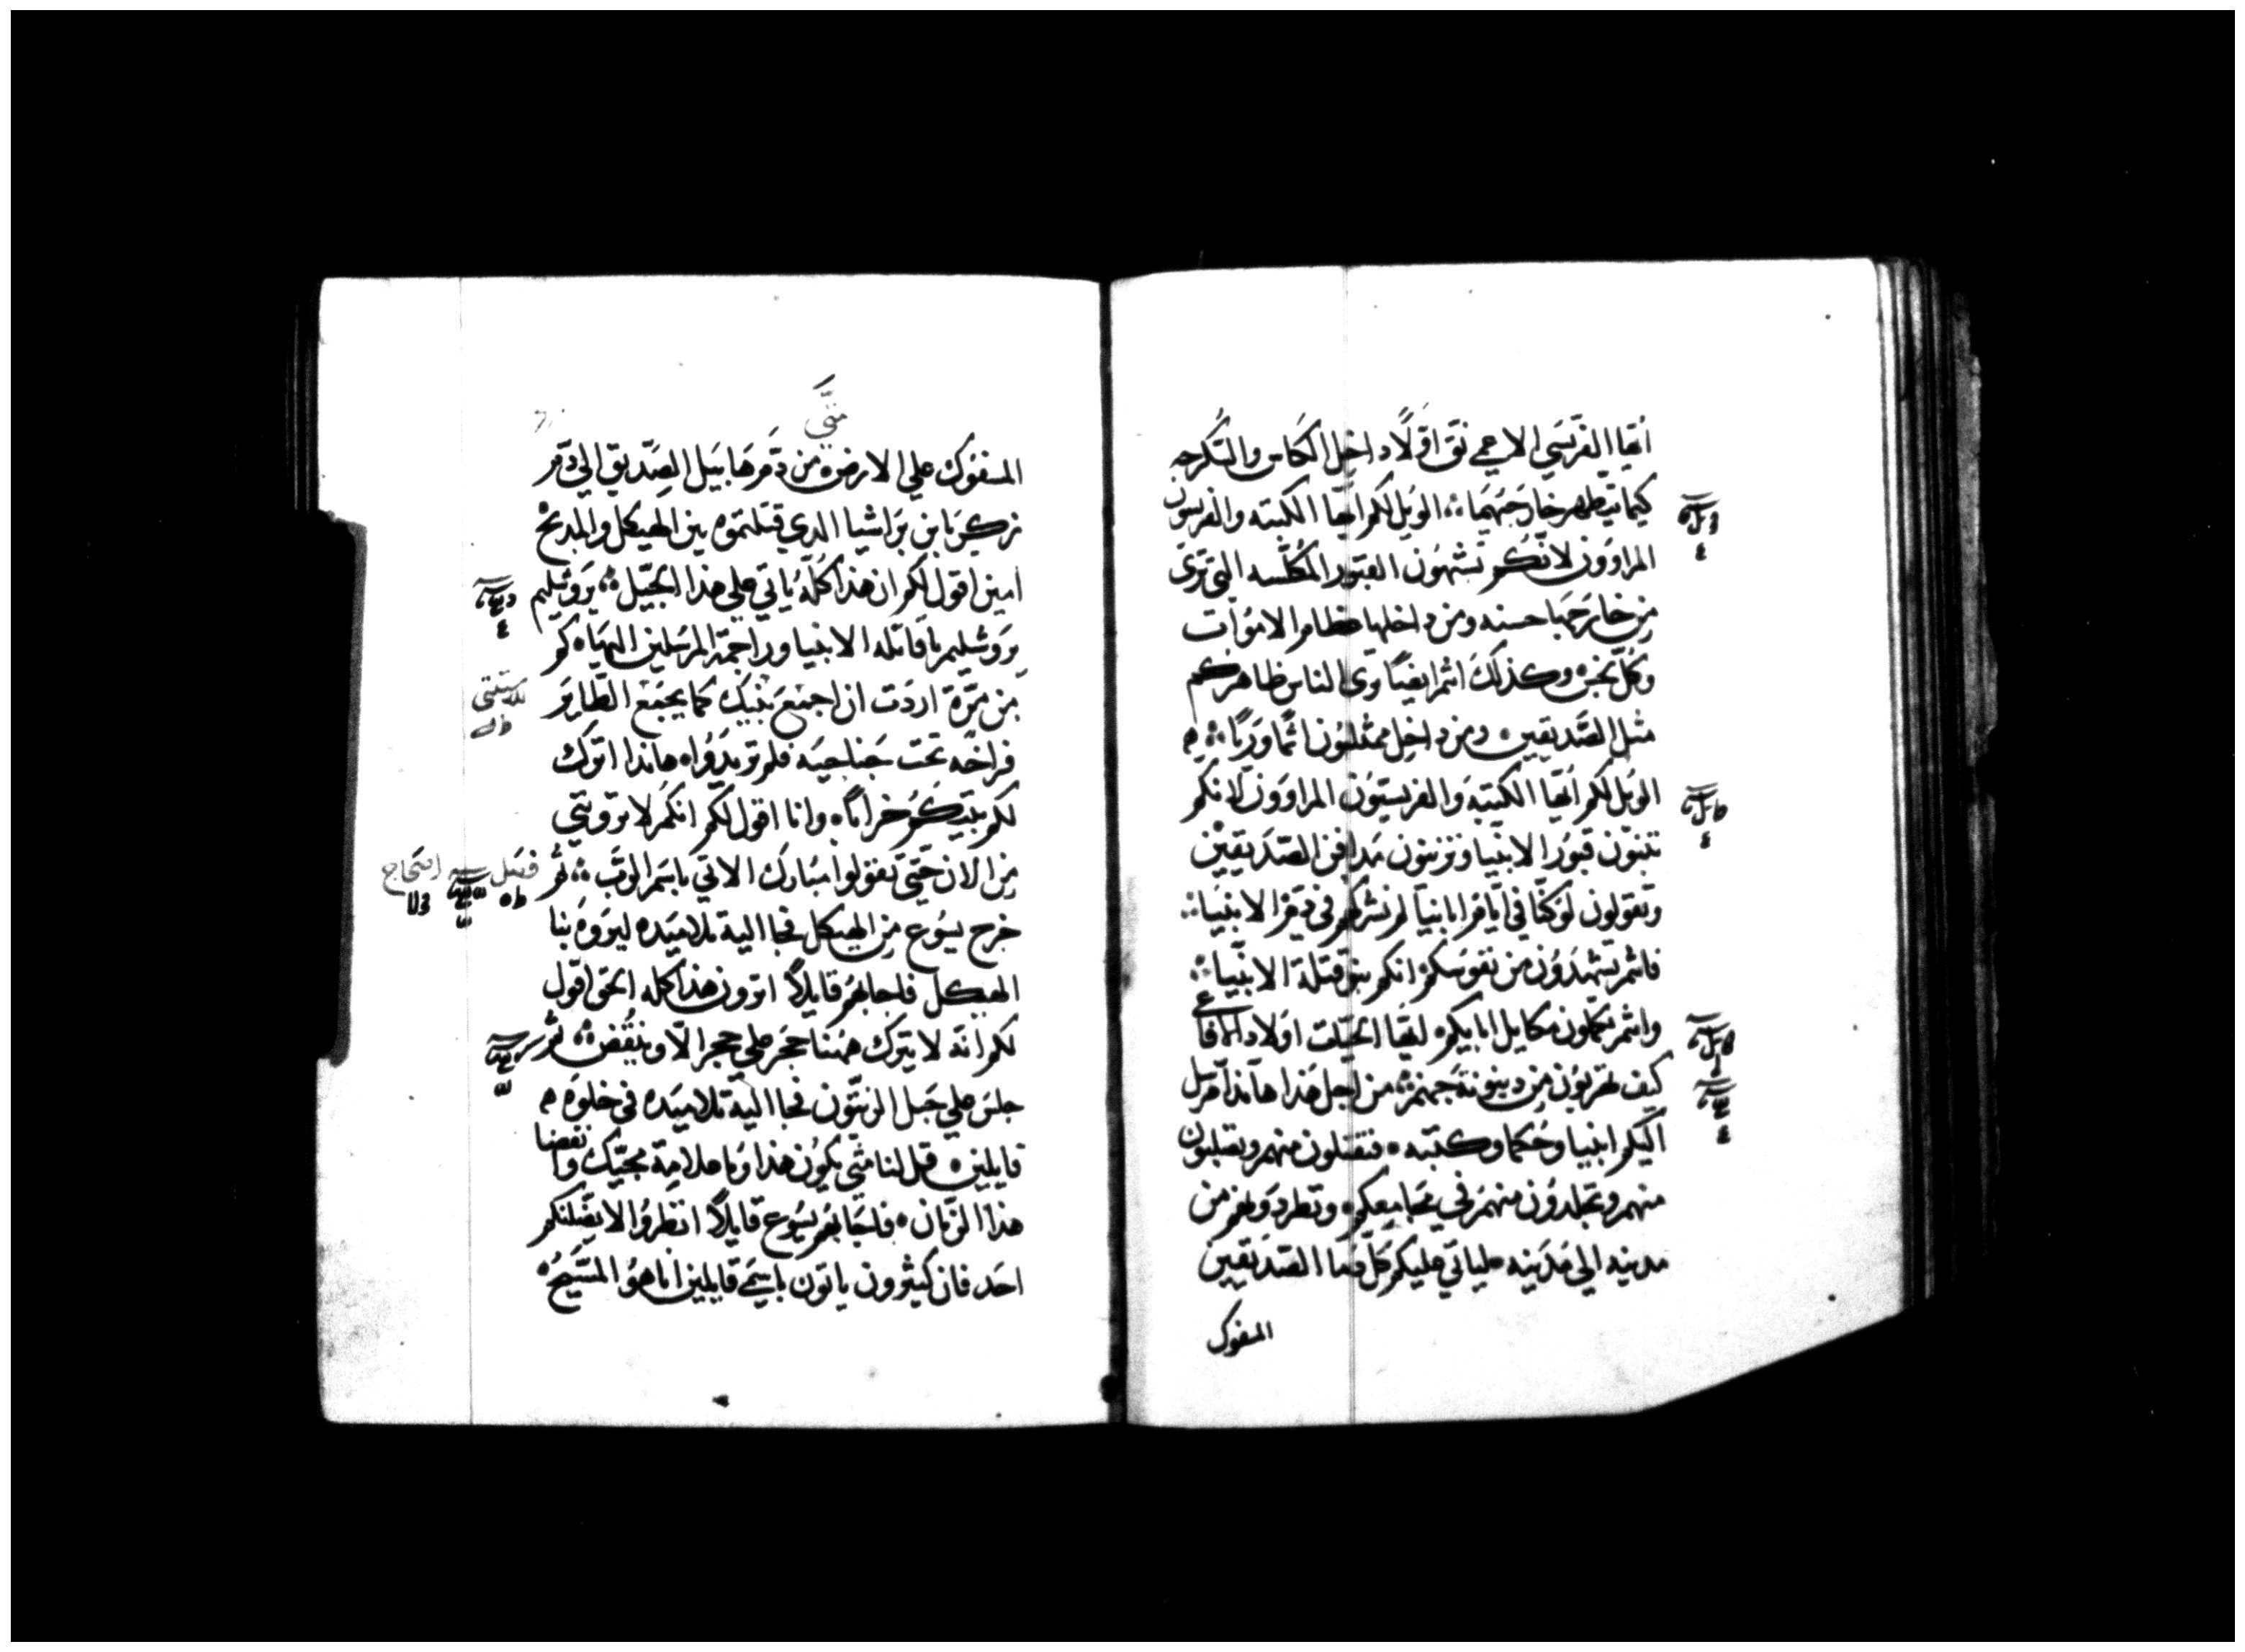 ايها الفريسي الاعمي نق اولًا داخل الكاس والسكرجه
كيما يتطهر خارجهما ؛ الويل لكم ايها الكتبه والفريسون
المراوون لانكم تشبهون القبور المكلسه التي تري
من خارجها حسنه ومن داخلها عظام الاموات
وكل نجس وكذلك انتم ايضًا وي الناس ظاهركم
مثل الصديقين ومن داخل ممتليون اثمًا وريًا ؛
الويل لكم ايها الكتبه والفريسيون المراوون لانكم
تبنون قبور الانبيا وتزينون مدافن الصديقين
وتقولون لو كنا في ايام ابائنا لم نشركهم في دم الانبيا ؛
فانتم تشهدون من نفوسكم انكم بنو قتلة الانبيا ؛
وانتم تكملون مكايل ابايكم ايها الحيات اولاد الافاعي
كيف تهربون من دينونة جهنم ؛ من اجل هذا هانذا مرسل
اليكم انبيا وحكما وكتبه فتقتلون منهم وتصلبون
منهم وتجلدون منهم في مجامعكم وتطردونهم من
مدينه الي مدينه لياتي عليكم كل دما الصديقين
المسفوك
متي
المسفوك علي الارض من دم هابيل الصديق الي دم
زكريا بن براشيا الدي قتلتموه بين الهيكل والمدبح
امين اقول لكم ان هذا كله ياتي علي هذا الجيل ؛ يروشليم
يروشليم يا قاتله الانبيا وراجمة المرسلين اليها كم
من مرة اردت ان اجمع بنيك كما يجمع الطاير
فراخه تحت جناحيه فلم تريدوا هانذا اترك
لكم بيتكم خرابًا وانا اقول لكم انكم لا تروني
من الان حتي تقولوا مبارك الاتي باسم الرب ؛ ثم
فصل
خرج يسوع من الهيكل فجا اليه تلاميده ليروه بنا
الهيكل فاجابهم قايلًا اترون هذا كله الحق اقول
لكم انه لا يترك ههنا حجر علي حجر الا وينقض ؛ ثم
جلس علي جبل الزيتون فجا اليه تلاميده في خلوه
قايلين قل لنا متي يكون هذا وما علامة مجيك وانقضا
هذا الزمان فاجابهم يسوع قايلًا انظروا لا يضلنكم
احد فان كثيرون ياتون باسمي قايلين انا هو المسيح